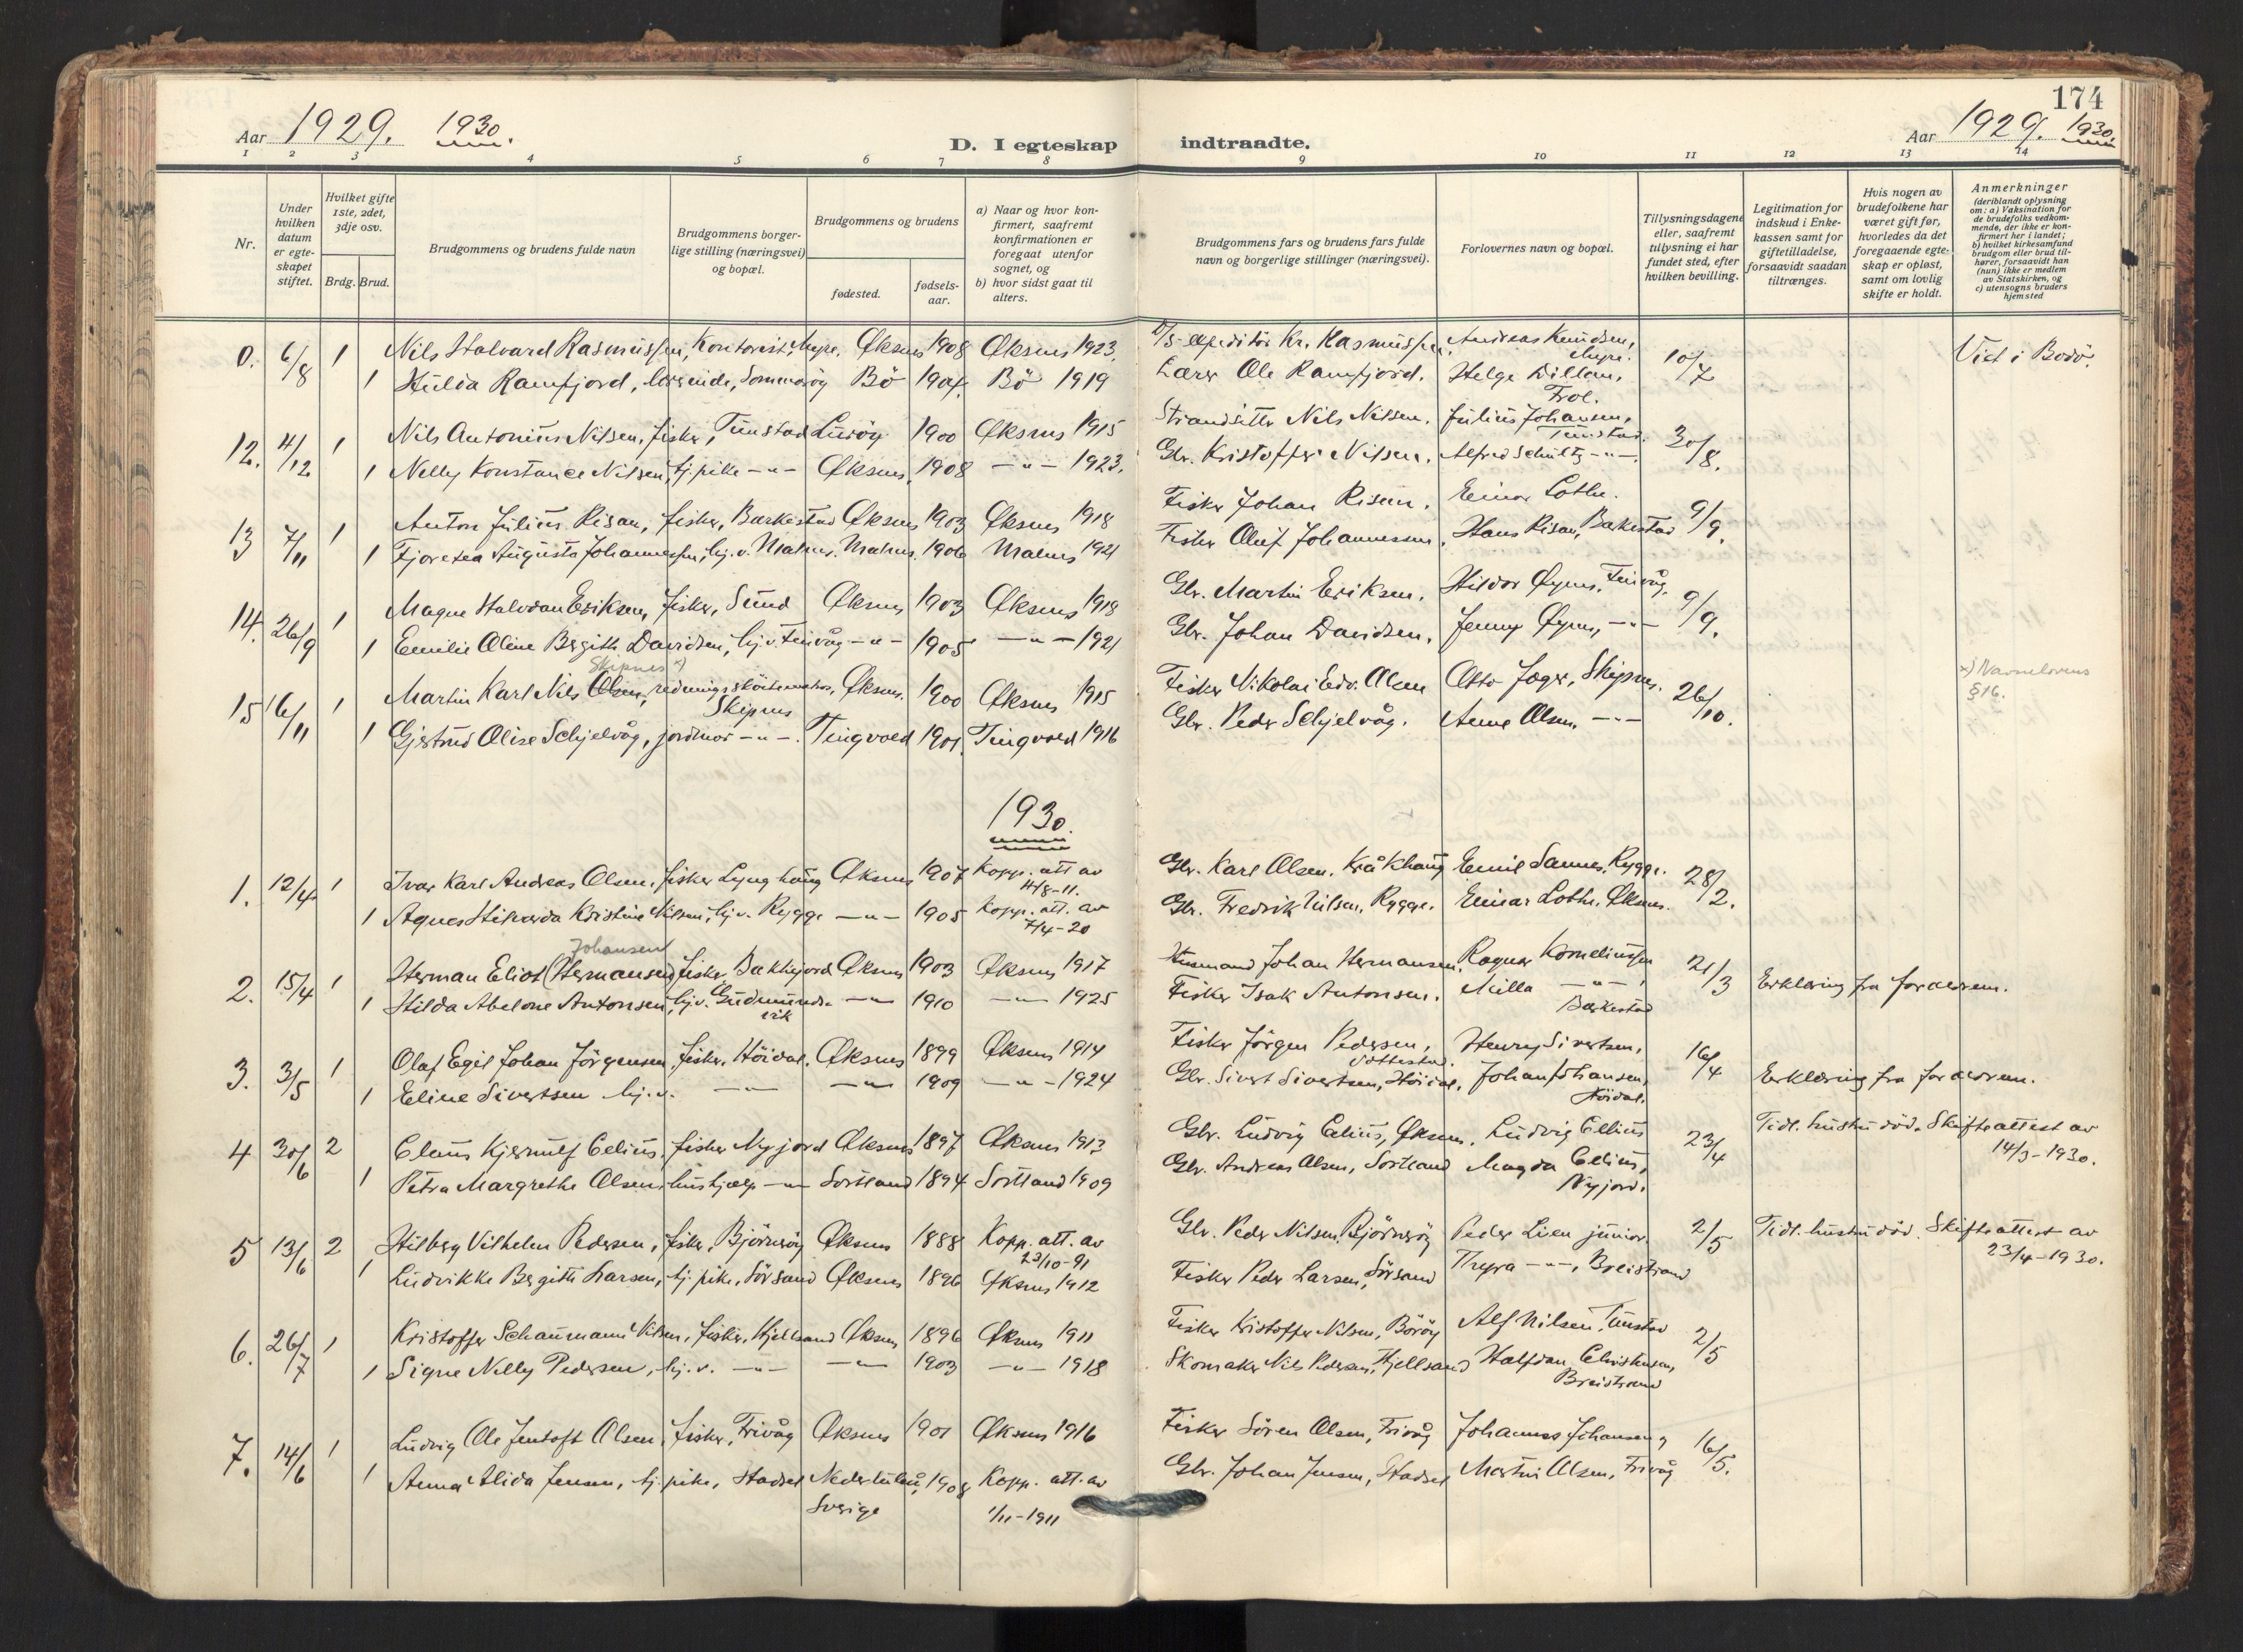 174
Aar 1929. 1930.
D. I egteskap indtraadte.
Aar 1929. 1930.
1 2 3 4 5 6 7 8 9 10 11 12 13 14
Nr.
Under hvilken datum er egteskapet stiftet.
Hvilket gifte 1ste, 2det, 3dje osv.
Brdg. Brud.
Brudgommens og brudens fulde navn
Brudgommens borgerlige stilling (næringsvei) og bopæl.
Brudgommens og brudens
fødested.
fødselsaar.
a) Naar og hvor konfirmert, saafremt konfirmationen er foregaat utenfor sognet, og
b) hvor sidst gaat til alters.
Brudgommens fars og brudens fars fulde navn og borgerlige stillinger (næringsvei).
Forlovernes navn og bopæl.
Tillysningsdagene eller, saafremt tillysning ei har fundet sted, efter hvilken bevilling.
Legitimation for indskud i Enkekassen samt for giftetilladelse, forsaavidt saadan tiltrænges.
Hvis nogen av brudefolkene har været gift før, hvorledes da det foregaaende egteskap er opløst, samt om lovlig skifte er holdt.
Anmerkninger
(deriblandt oplysning om: a) Vaksination for de brudefolks vedkommende, der ikke er konfirmert her i landet; b) hvilket kirkesamfund brudgom eller brud tilhører, forsaavidt han (hun) ikke er medlem av Statskirken, og c) utensogns bruders hjemsted
0. 6/8 1 Nils Halvard Rasmussen, Kontorist, Myre. Øksnes 1908 Øksnes 1923. D/S-expeditör Kr. Rasmussen. Andreas Knudsen, Myre. 10/7 Viet i Bodö.
1 Hulda Ramfjord, lærerinde, Sommerøy Bö 1904. Bö 1919 Lærer Ole Ramfjord. Helge Dillan,
12. 4/12 1 Nils Antonius Nilsen, fisker, Tunstad Luröy 1900 Øksnes 1915 Strandsitter Nils Nilsen. Julius Johansen, Tunstad. 30/8.
1 Nelly Konstance Nilsen, tj.pike -"- Øksnes. 1908 -"- 1923. Gbr. Kristoffer Nilsen. Alfred Schultz -"-.
13 7/11 1 Anton Julius Risan, fisker, Barkestad Øksnes 1903 Øksnes 1918 Fisker Johan Risan. Einar Lothe. 9/9.
1 Augusta Johannessen, hj.v. Malnes. Malnes. 1906 Malnes 1921 Fisker Oluf Johannessen. Hans Risan, Barkestad
14. 26/9 1 Magne Halvdan Eriksen, fisker, Sund Øksnes 1903 Øksnes 1918 Gbr. Martin Eriksen. Hildor Øynes, Finvåg. 9/9.
1 Emilie Oline Bergith Davidsen, hj.v. Finvåg -"- 1905 -"- 1921 Gbr. Johan Davidsen. Jenny Øynes, -"-
Skipnes x)
15 16/11 1 Martin Karl Nils Olsen, Skipnes Øksnes. 1900 Øksnes 1915 Fisker Nikolai Edv. Olsen Otto Jæger, Skipnes. 26/10. x) Navnelovens § 16.
1 Gjertrud Olise Schjelvåg, jordmor -"-. Tingvold 1901. Tingvold 1916 Gbr. Peder Schjelvåg. Anne Olsen -"-
1930.
1. 12/4 1 Ivar Karl Andreas Olsen, fisker Lynghaug Øksnes 1907 Kopp. att av 4/8-11. Gbr. Karl Olsen, Kråkhaug Emil Sannes, Rygge. 28/2.
1 Agnes Kristine Nilsen, hj.v. Rygge -"- 1905 Kopp. att. av 7/4-20 Gbr. Fredrik Nilsen, Rygge. Einar Lothe. Øksnes.
Johansen
2. 15/4 1 Herman Eliot (Hermansen) fisker, Øksnes 1903 Øksnes 1917 Husmand Johan Hermansen. Ragnar Korneliussen 21/3 Erklæring fra foreldrene.
1 Hilda Abelone Antonsen, hj.v. Gudmundsvik -"- 1910 -"- 1925 Fisker Isak Antonsen. Milla -"-, Barkestad
3. 3/5 1 Olaf Egil Johan Jörgensen, fisker, Höidal. Øksnes 1899 Øksnes 1914 Fisker Jörgen Pedersen, Henry Sivertsen, 16/4 Erklæring fra foreldrene.
1 Eline Sivertsen hj.v. -"- -"- 1909 -"- 1924 Gbr. Sivert Sivertsen, Höidal. Johan Johansen, Höidal.
4 30/6 2 Claus Kjerulf Celius, fisker Nyjord Øksnes 1897 Øksnes 1913 Gbr. Ludvig Celius, Øksnes. Ludvig Cellius 23/4 Tidl. hustru död. Skifteattest av 14/3-1930.
1 Petra Margrethe Olsen, hushjælp -"- Sortland 1894 Sortland 1909 Gbr. Andreas Olsen, Sortland Magda Celius, Nyjord.
5 13/6 2 Hilberg Vilhelm Pedersen, fisker, Björnröy Øksnes 1888 Kopp. att. av 23/10-91 Gbr. Peder Nilsen, Björnröy Peder Lien junior. 2/5 Tidl. hustru död. Skifteattest av 23/4-1930.
1 Ludvikke Bergith Larsen, tj.pike, Sörsand Øksnes 1896 Øksnes 1912 Fisker Peder Larsen, Sörsand Thyra -"-, Breistrand
6. 26/7 1 Kristoffer Schaumann Nilsen, fisker, Hjellsand Øksnes 1896 Øksnes 1911 Fisker Kristoffer Nilsen, Böröy Alf Nilsen, Tunstad 2/5
1 Signe Nelly Pedersen, hj.v. -"- -"- 1903 -"- 1918 Skomaker Nils Pedersen, Hjellsand Halfdan Christensen, Breistrand
7. 14/6 1 Ludvig Ole Jentoft Olsen, fisker, Frivåg Øksnes 1901 Øksnes 1916 Fisker Sören Olsen, Frivåg Johannes Johansen, 16/5.
1 Anna Alida Jensen, tj.pike, Stadsel Nederluleå, Sverige 1908 Kopp. att. av 1/11-1911 Gbr. Johan Jensen, Stadsel Martin Olsen, Frivåg